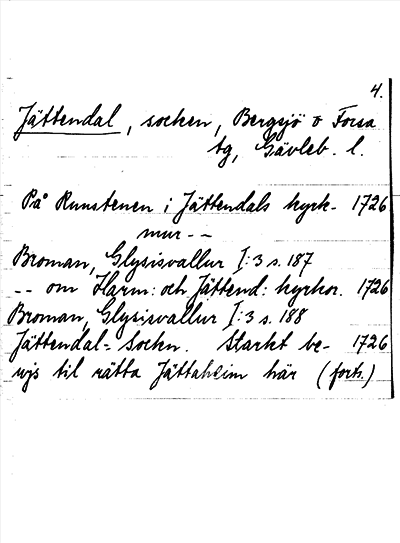 4.
Jättendal, socken, Bergsjö o Forsa
tg, Gävleb. l.
På Runstenen i Jättendals kyrk- 1726
mur --
Broman, Glysisvallur I:3 s. 187
-- om Harm: och Jättend: kyrkor. 1726
Broman, Glysisvallur I:3 s. 188
Jättendal-Sockn. Starkt be- 1726
wjs til rätta Jättaheim här (forts.)